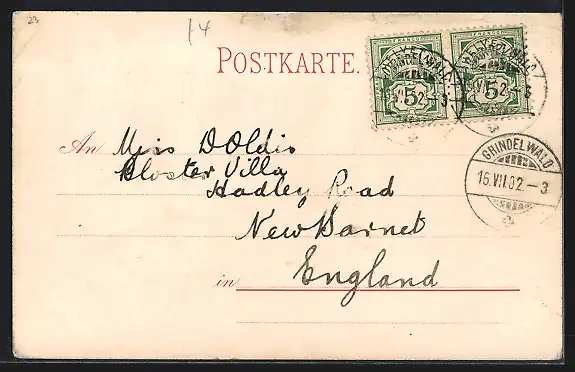 23
14
POSTKARTE.
FRANCO FRANCO
GRINDELWALD
5 5
GRINDELWALD
16.VII.02-3
An Miss D Oldis
Kloster Villa
Hadley Road
New Barnet
in England